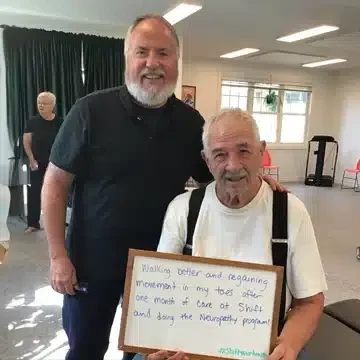 Walking better and regaining
movement in my toes after
one month of care at Shift
and doing the Neuropathy program!